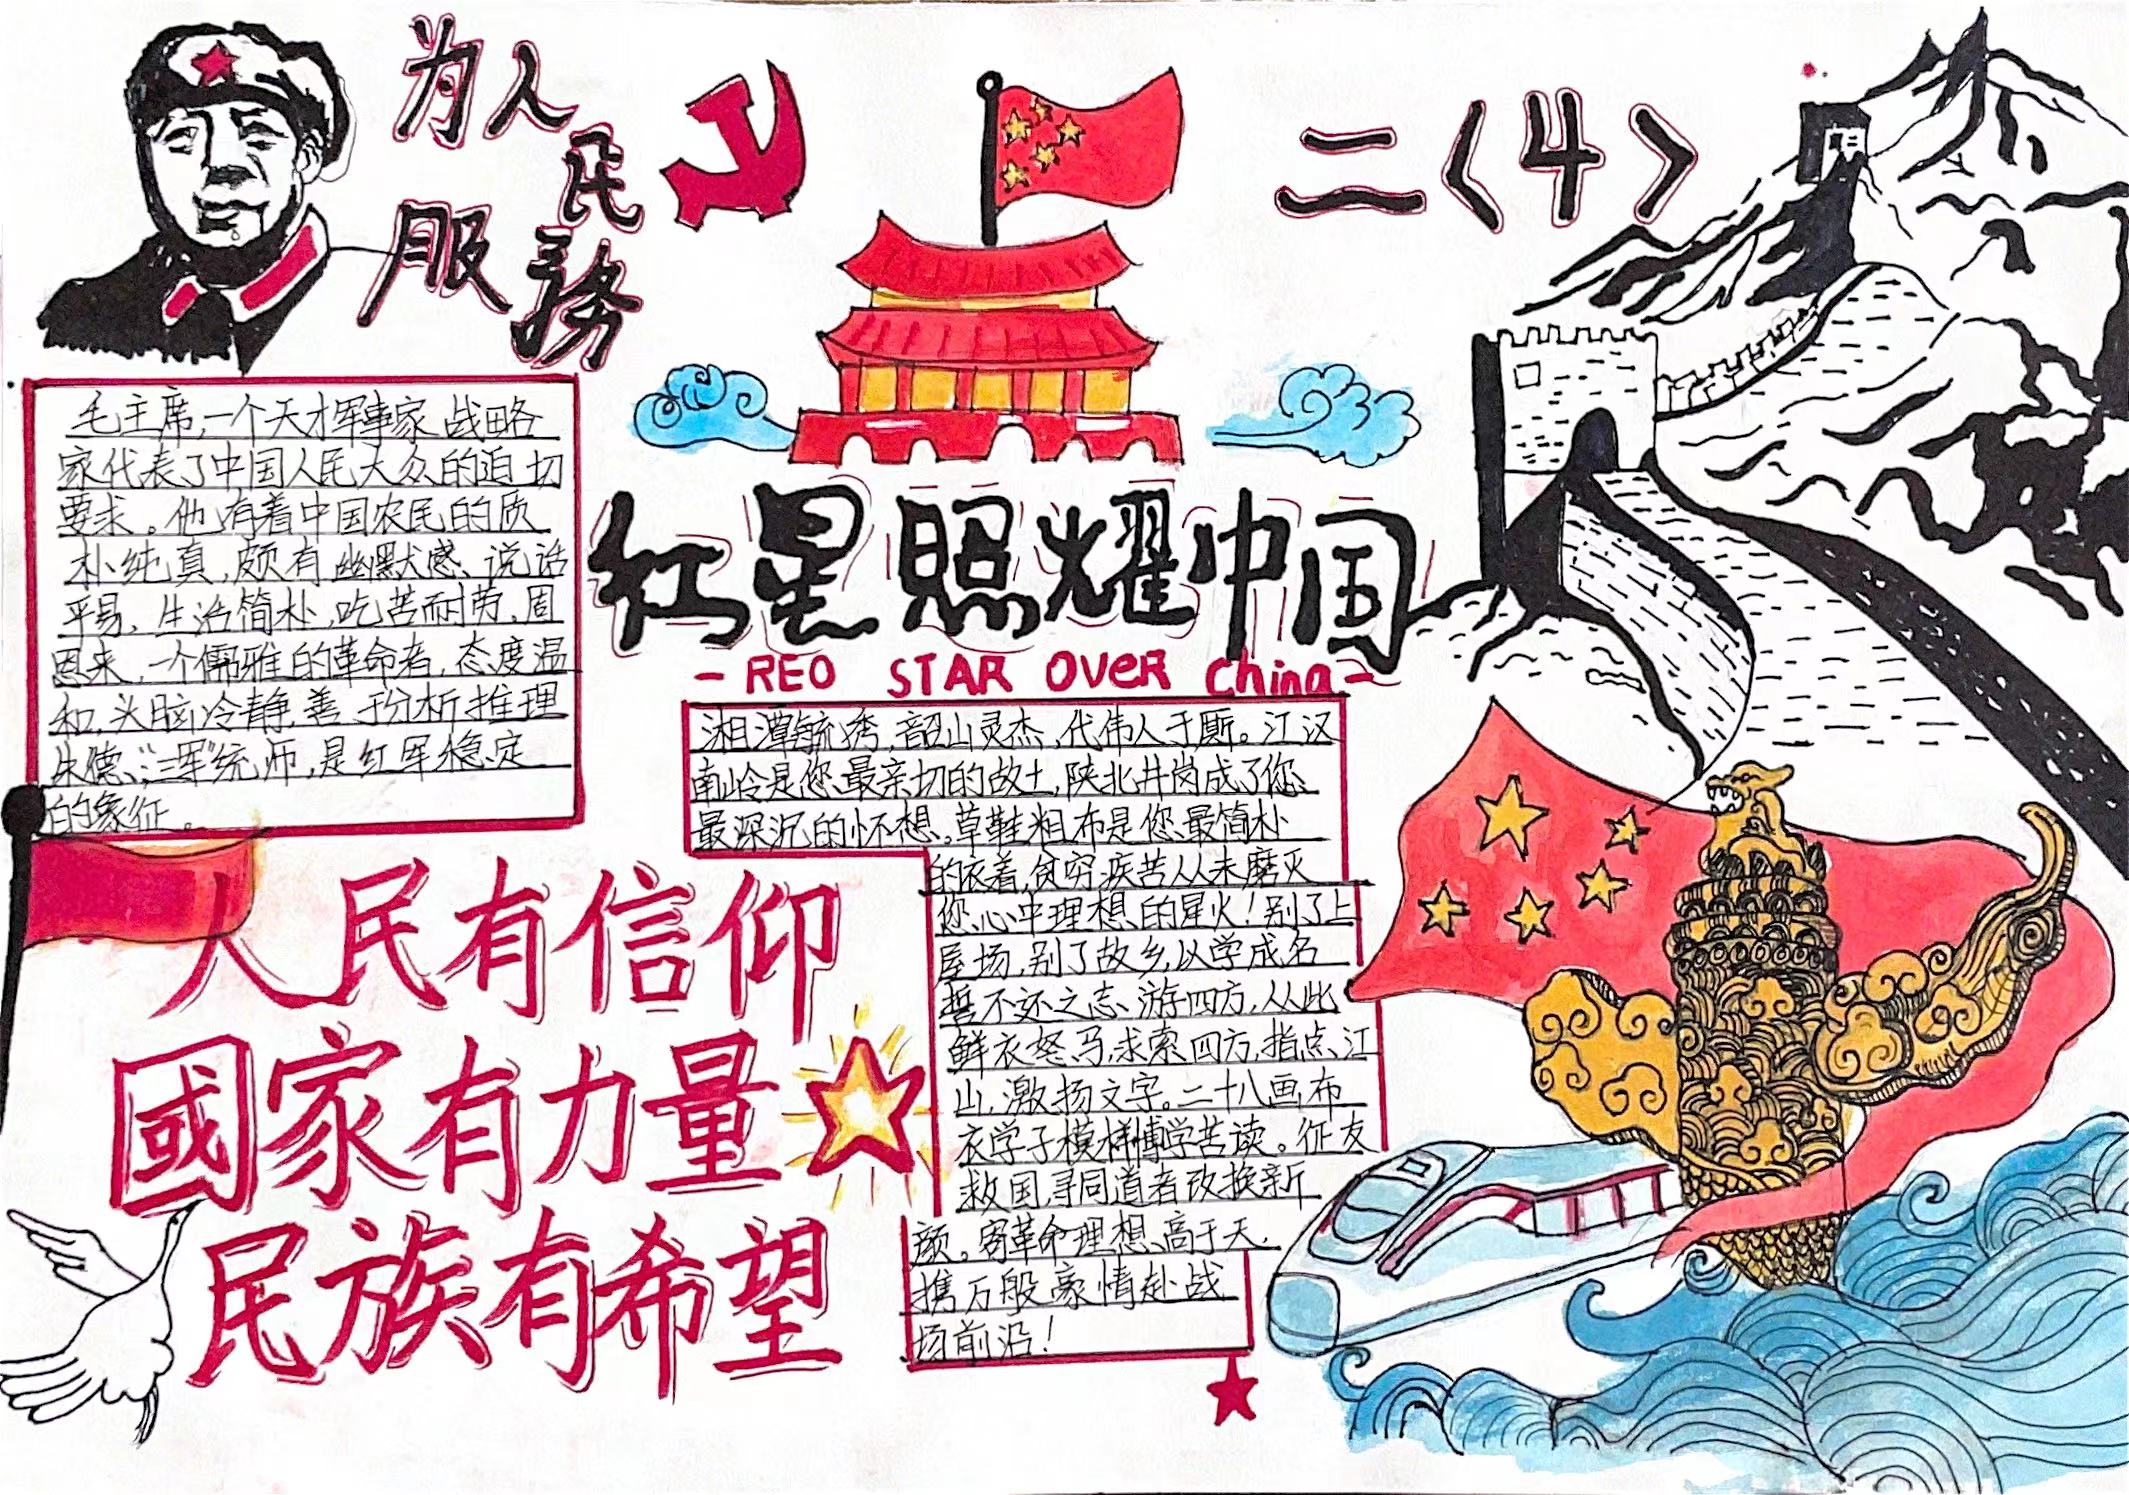 为人民
服务
二<4>
毛主席,一个天才军事家战略
家代表了中国人民大众的迫切
要求。他,有着中国农民的质
朴纯真,颇有幽默感、说话
平易,生活简朴,吃苦耐劳,周
恩来,一个儒雅的革命者,态度温
和,头脑冷静善于分析推理
朱德,“三军”统帅,是红军稳定
的象征。
红星照耀中国
-REO STAR OVeR China-
湘潭毓秀,韶山灵杰,代伟人于厮。江汉
南岭是您最亲切的故土,陕北井岗成了您
最深沉的怀想。草鞋粗布是您最简朴
的依着,贫穷疾苦从未磨灭
您心中理想的星火!别了上
屋场,别了故乡,以学成名
誓不还之志、游四方,从此
鲜衣怒马,求索四方,指点江
山,激扬文字。二十八画布
衣学子模样博学苦读。征友
救国,寻同道者改换新
颜。寄革命理想高于天,
携万般豪情赴战
场前沿!
人民有信仰
國家有力量
民族有希望